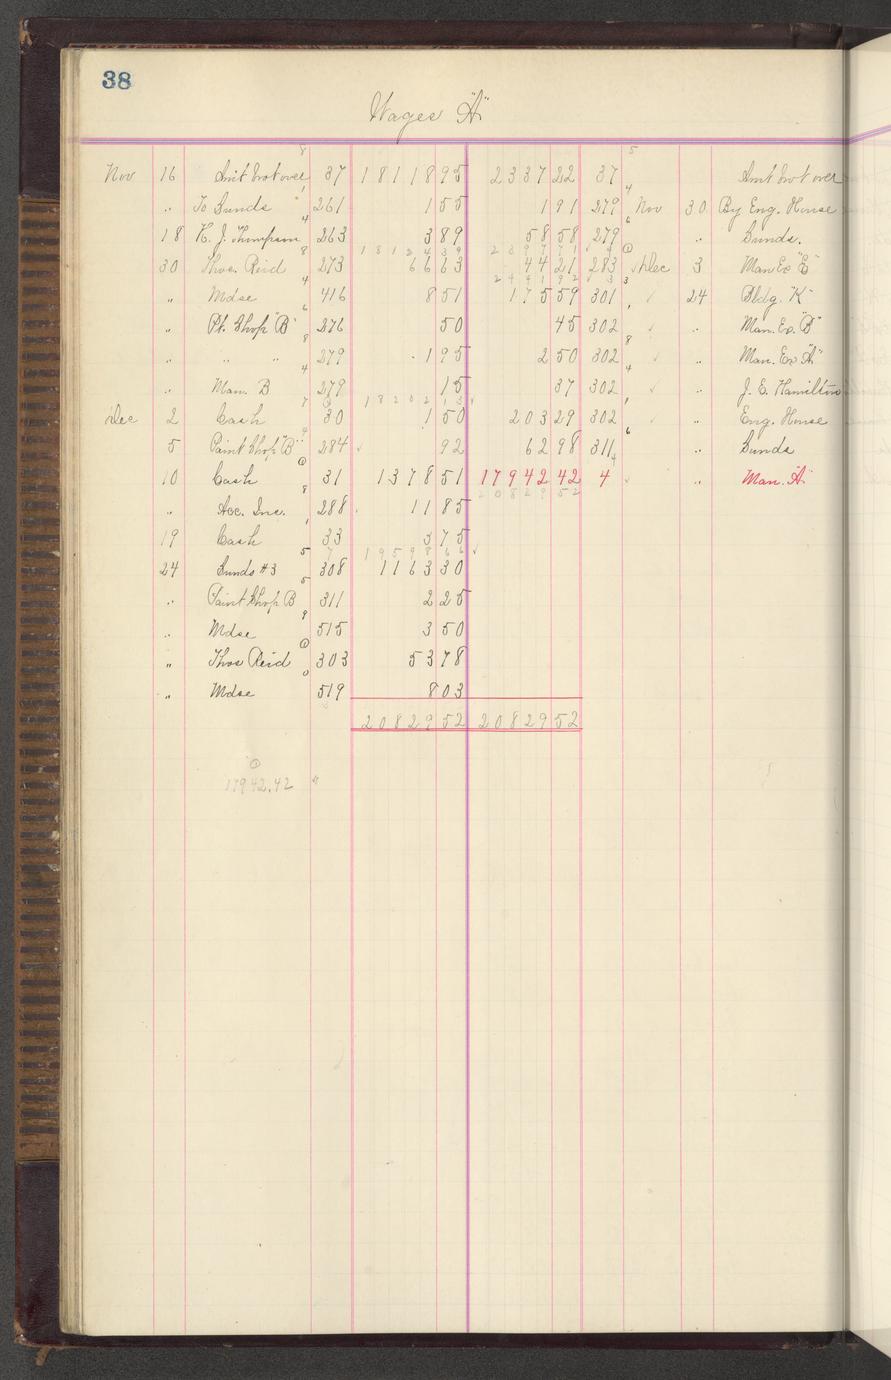 38
Wages "A"
Nov 16 Amt brot over 37 18118 95 2337 22 37 Amt brot over
" To Sunds 261 1 55 1 91 279 Nov 30 By Eng. House
18 H. J. Thompson 263 3 89 58 58 279 " Sunds.
18124 39 2397 71
30 Thos. Reid 273 66 63 44 21 283 Dec 3 Man Ex "E"
2441 92
" Mdse 416 8 51 175 59 301 24 Bldg. "K"
" Pt. Shop "B" 276 50 45 302 " Man. Ex. "B"
" " " 279 1 95 2 50 302 " Man. Ex "A"
" Man. B 279 15 37 302 " J. E. Hamilton
18202 13
Dec 2 Cash 30 1 50 203 29 302 " Eng. House
5 Paint Shop "B" 284 92 62 98 311 " Sunds
10 Cash 31 1378 51 17942 42 4 " Man. "A"
20829 52
" Acc. Inc. 288 11 85
19 Cash 33 3 75
19598 66
24 Sunds #3 308 1163 30
" Paint Shop B 311 2 25
" Mdse 515 3 50
" Thos Reid 303 53 78
" Mdse 519 8 03
20829 52 20829 52
17942.42